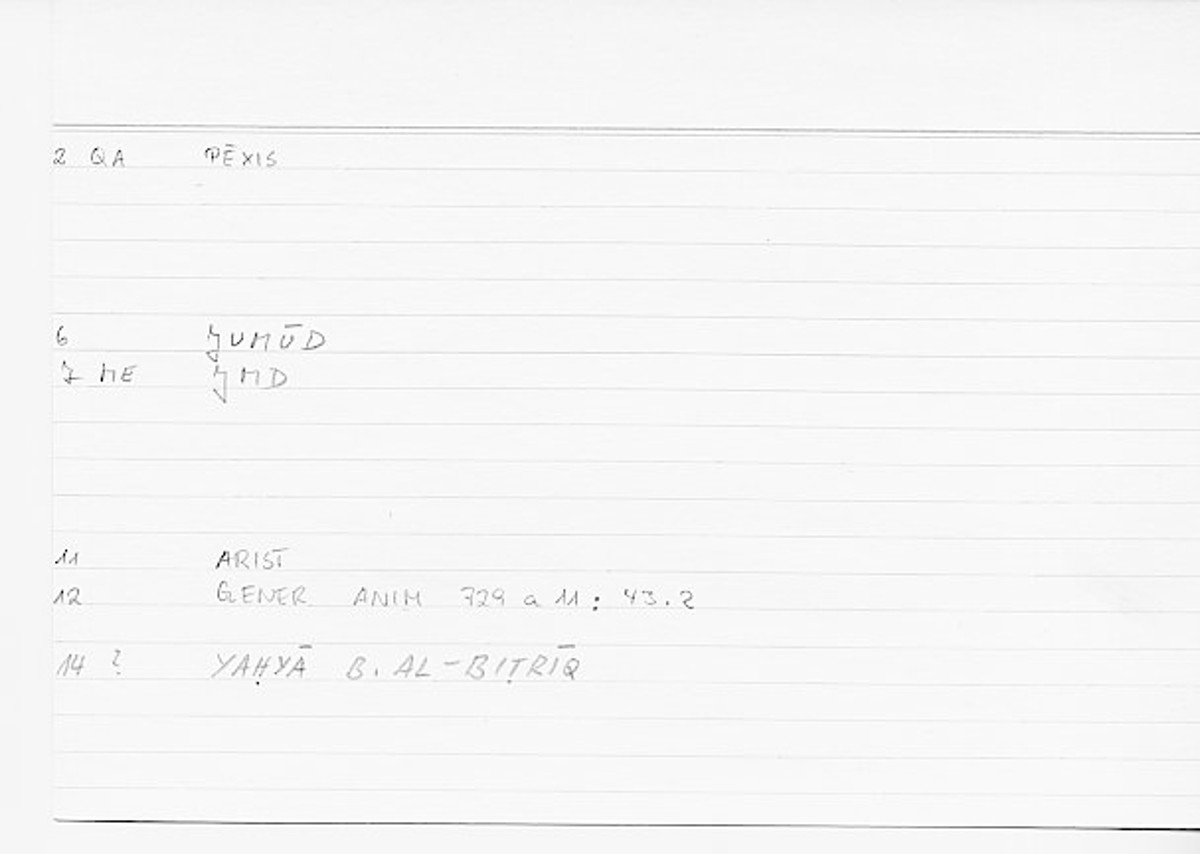 2 QA PĒXIS
6 JUMŪD
7 ME JMD
11 ARIST
12 GENER ANIM 729 a 11 : 43.2
14 ? YAḤYĀ B. AL-BIṬRĪQ